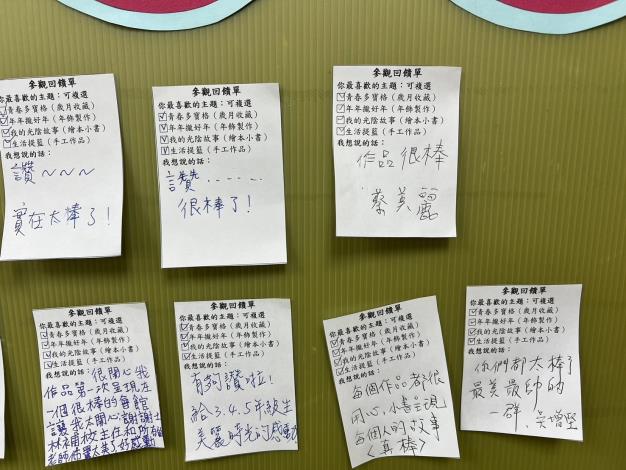 參觀回饋單
你最喜歡的主題：可複選
青春多寶格（歲月收藏）
年年攏好年（年飾製作）
我的光陰故事（繪本小書）
生活提籃（手工作品）
我想說的話：
讚～～～
實在太棒了！
參觀回饋單
你最喜歡的主題：可複選
青春多寶格（歲月收藏）
年年攏好年（年飾製作）
我的光陰故事（繪本小書）
生活提籃（手工作品）
我想說的話：
讚......
很棒了！
參觀回饋單
你最喜歡的主題：可複選
青春多寶格（歲月收藏）
年年攏好年（年飾製作）
我的光陰故事（繪本小書）
生活提籃（手工作品）
我想說的話：
作品很棒
蔡美麗
參觀回饋單
你最喜歡的主題：可複選
青春多寶格（歲月收藏）
年年攏好年（年飾製作）
我的光陰故事（繪本小書）
生活提籃（手工作品）
我想說的話：很開心我
作品第一次呈現在
一個很棒的會館
讓我太開心謝謝士
林補校主任和所有
老師佈置太美了好感動
參觀回饋單
你最喜歡的主題：可複選
青春多寶格（歲月收藏）
年年攏好年（年飾製作）
我的光陰故事（繪本小書）
生活提籃（手工作品）
我想說的話：
有夠讚啦！
給3.4.5年級生
美麗時光的感動
參觀回饋單
你最喜歡的主題：可複選
青春多寶格（歲月收藏）
年年攏好年（年飾製作）
我的光陰故事（繪本小書）
生活提籃（手工作品）
我想說的話：
每個作品都很
用心，小書呈現
每個人的故事
〈真棒〉
參觀回饋單
你最喜歡的主題：可複選
青春多寶格（歲月收藏）
年年攏好年（年飾製作）
我的光陰故事（繪本小書）
生活提籃（手工作品）
我想說的話：
你們都太棒了
最美最帥的
一群 吳增堅